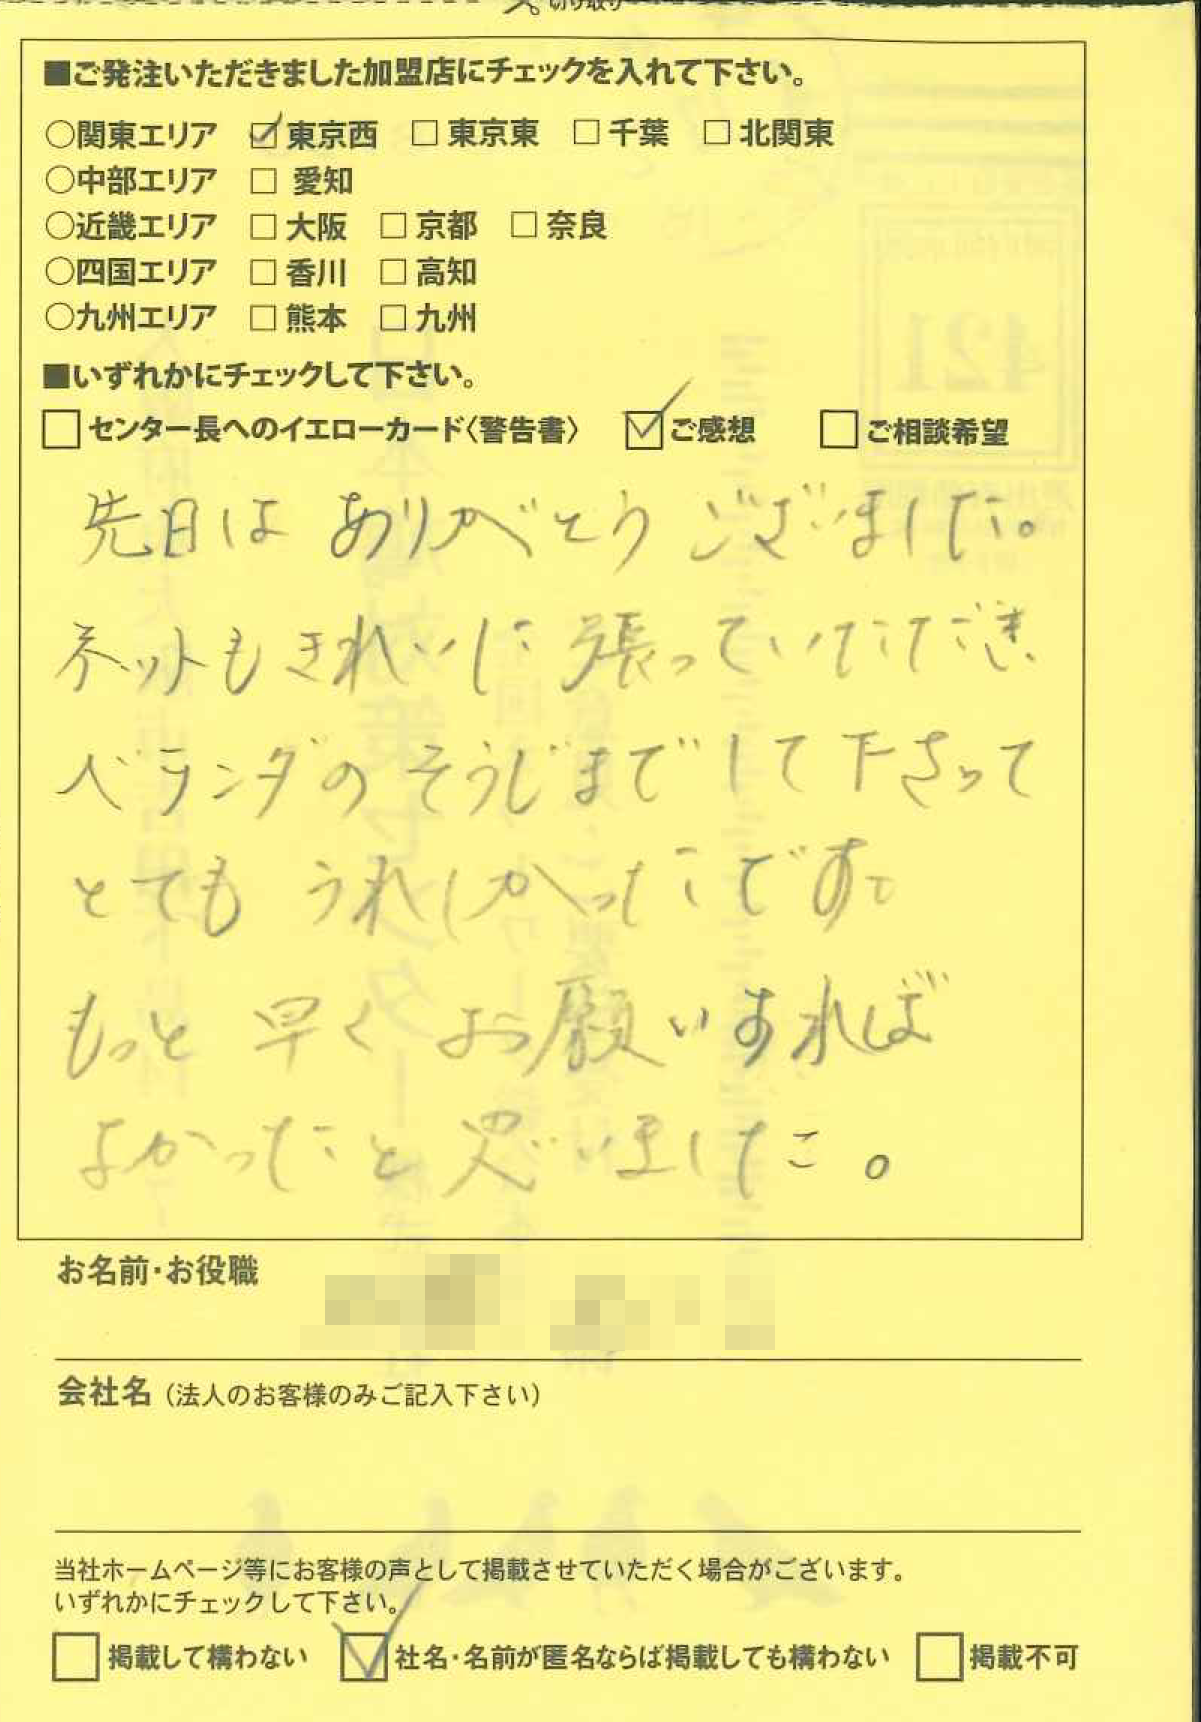 切り取り
■ご発注いただきました加盟店にチェックを入れて下さい。
○関東エリア ☑東京西 □東京東 □千葉 □北関東
○中部エリア □愛知
○近畿エリア □大阪 □京都 □奈良
○四国エリア □香川 □高知
○九州エリア □熊本 □九州
■いずれかにチェックして下さい。
□センター長へのイエローカード〈警告書〉 ☑ご感想 □ご相談希望
先日は ありがとう ございました。
ネットもきれいに 張っていただき
ベランダのそうじまでして下さって
とても うれしかったです。
もっと 早く お願いすれば
よかったと思いました。
お名前・お役職
会社名（法人のお客様のみご記入下さい）
当社ホームページ等にお客様の声として掲載させていただく場合がございます。
いずれかにチェックして下さい。
□掲載して構わない ☑社名・名前が匿名ならば掲載しても構わない □掲載不可